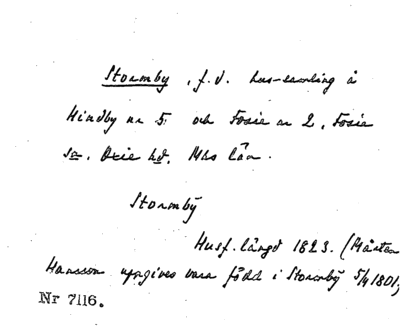 Stormby, f.d. hus-samling å
Hindby nr 5 och Fosie nr 2, Fosie
sn, Oxie hd, Mhs län.
Stormbÿ
Husf. längd 1823. (Mårten
Hansson uppgives vara född i Stormbÿ 5/4 1801)
Nr 7116.